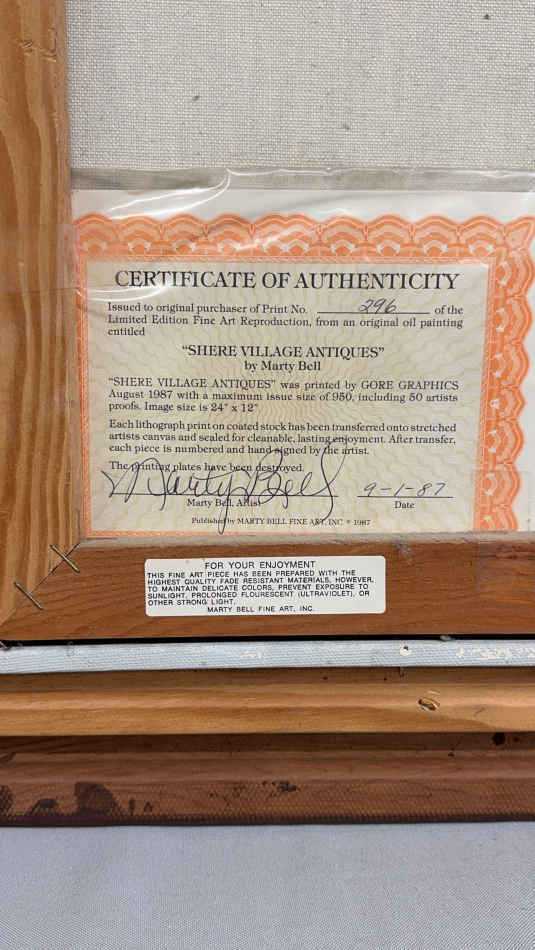 CERTIFICATE OF AUTHENTICITY
Issued to original purchaser of Print No. 296 of the
Limited Edition Fine Art Reproduction, from an original oil painting
entitled
"SHERE VILLAGE ANTIQUES"
by Marty Bell
"SHERE VILLAGE ANTIQUES" was printed by GORE GRAPHICS
August 1987 with a maximum issue size of 950, including 50 artists
proofs. Image size is 24" x 12"
Each lithograph print on coated stock has been transferred onto stretched
artists canvas and sealed for cleanable, lasting enjoyment. After transfer,
each piece is numbered and hand signed by the artist.
The printing plates have been destroyed.
Marty Bell 9-1-87
Marty Bell, Artist Date
Published by MARTY BELL FINE ART, INC. © 1987
FOR YOUR ENJOYMENT
THIS FINE ART PIECE HAS BEEN PREPARED WITH THE
HIGHEST QUALITY FADE RESISTANT MATERIALS, HOWEVER,
TO MAINTAIN DELICATE COLORS, PREVENT EXPOSURE TO
SUNLIGHT, PROLONGED FLOURESCENT (ULTRAVIOLET), OR
OTHER STRONG LIGHT.
MARTY BELL FINE ART, INC.